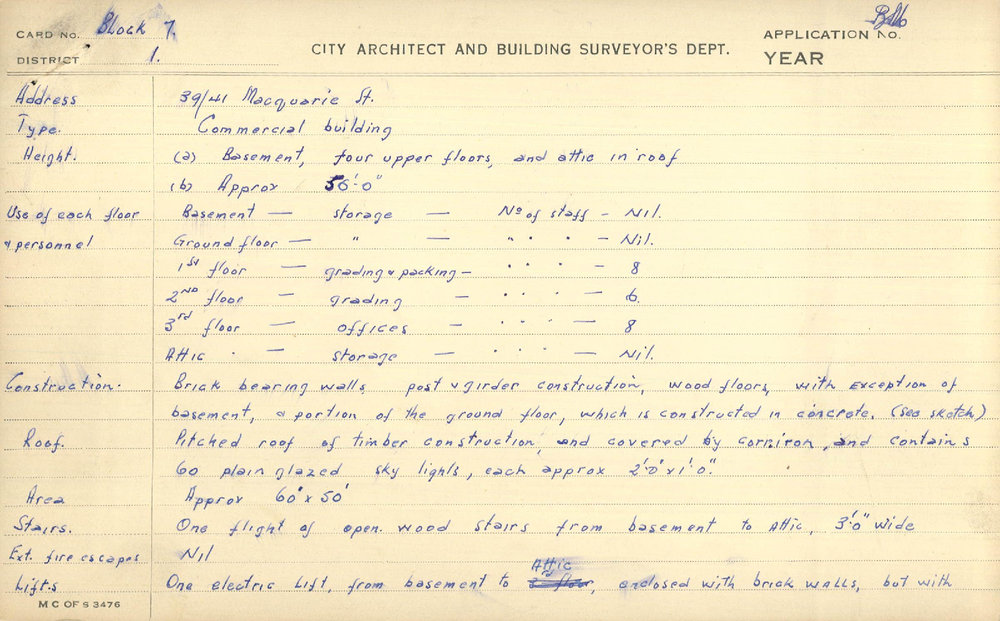 CARD No. Block 7.
APPLICATION No.
DISTRICT 1.
CITY ARCHITECT AND BUILDING SURVEYOR'S DEPT.
YEAR
Address 39/41 Macquarie St.
Type. Commercial building
Height. (a) Basement, four upper floors, and attic in roof
(b) Approx 56'-0"
Use of each floor Basement — storage — No of staff - Nil.
& personnel Ground floor — " — " . . . - Nil.
1st floor — grading & packing — . . . - 8
2ND floor — grading — . . . — 6.
3rd floor — offices — . . . — 8
Attic . — storage — . . . — Nil.
Construction. Brick bearing walls, post & girder construction, wood floors, with exception of
basement, & portion of the ground floor, which is constructed in concrete. (See sketch)
Roof. Pitched roof of timber construction and covered by corr iron, and contains
60 plain glazed sky lights, each approx 2'0" x 1'0".
Area Approx 60' x 50'
Stairs. One flight of open wood stairs from basement to Attic, 3'0" wide
Ext. fire escapes Nil
Lifts One electric Lift, from basement to 3rd floor Attic, enclosed with brick walls, but with
M C OF S 3476